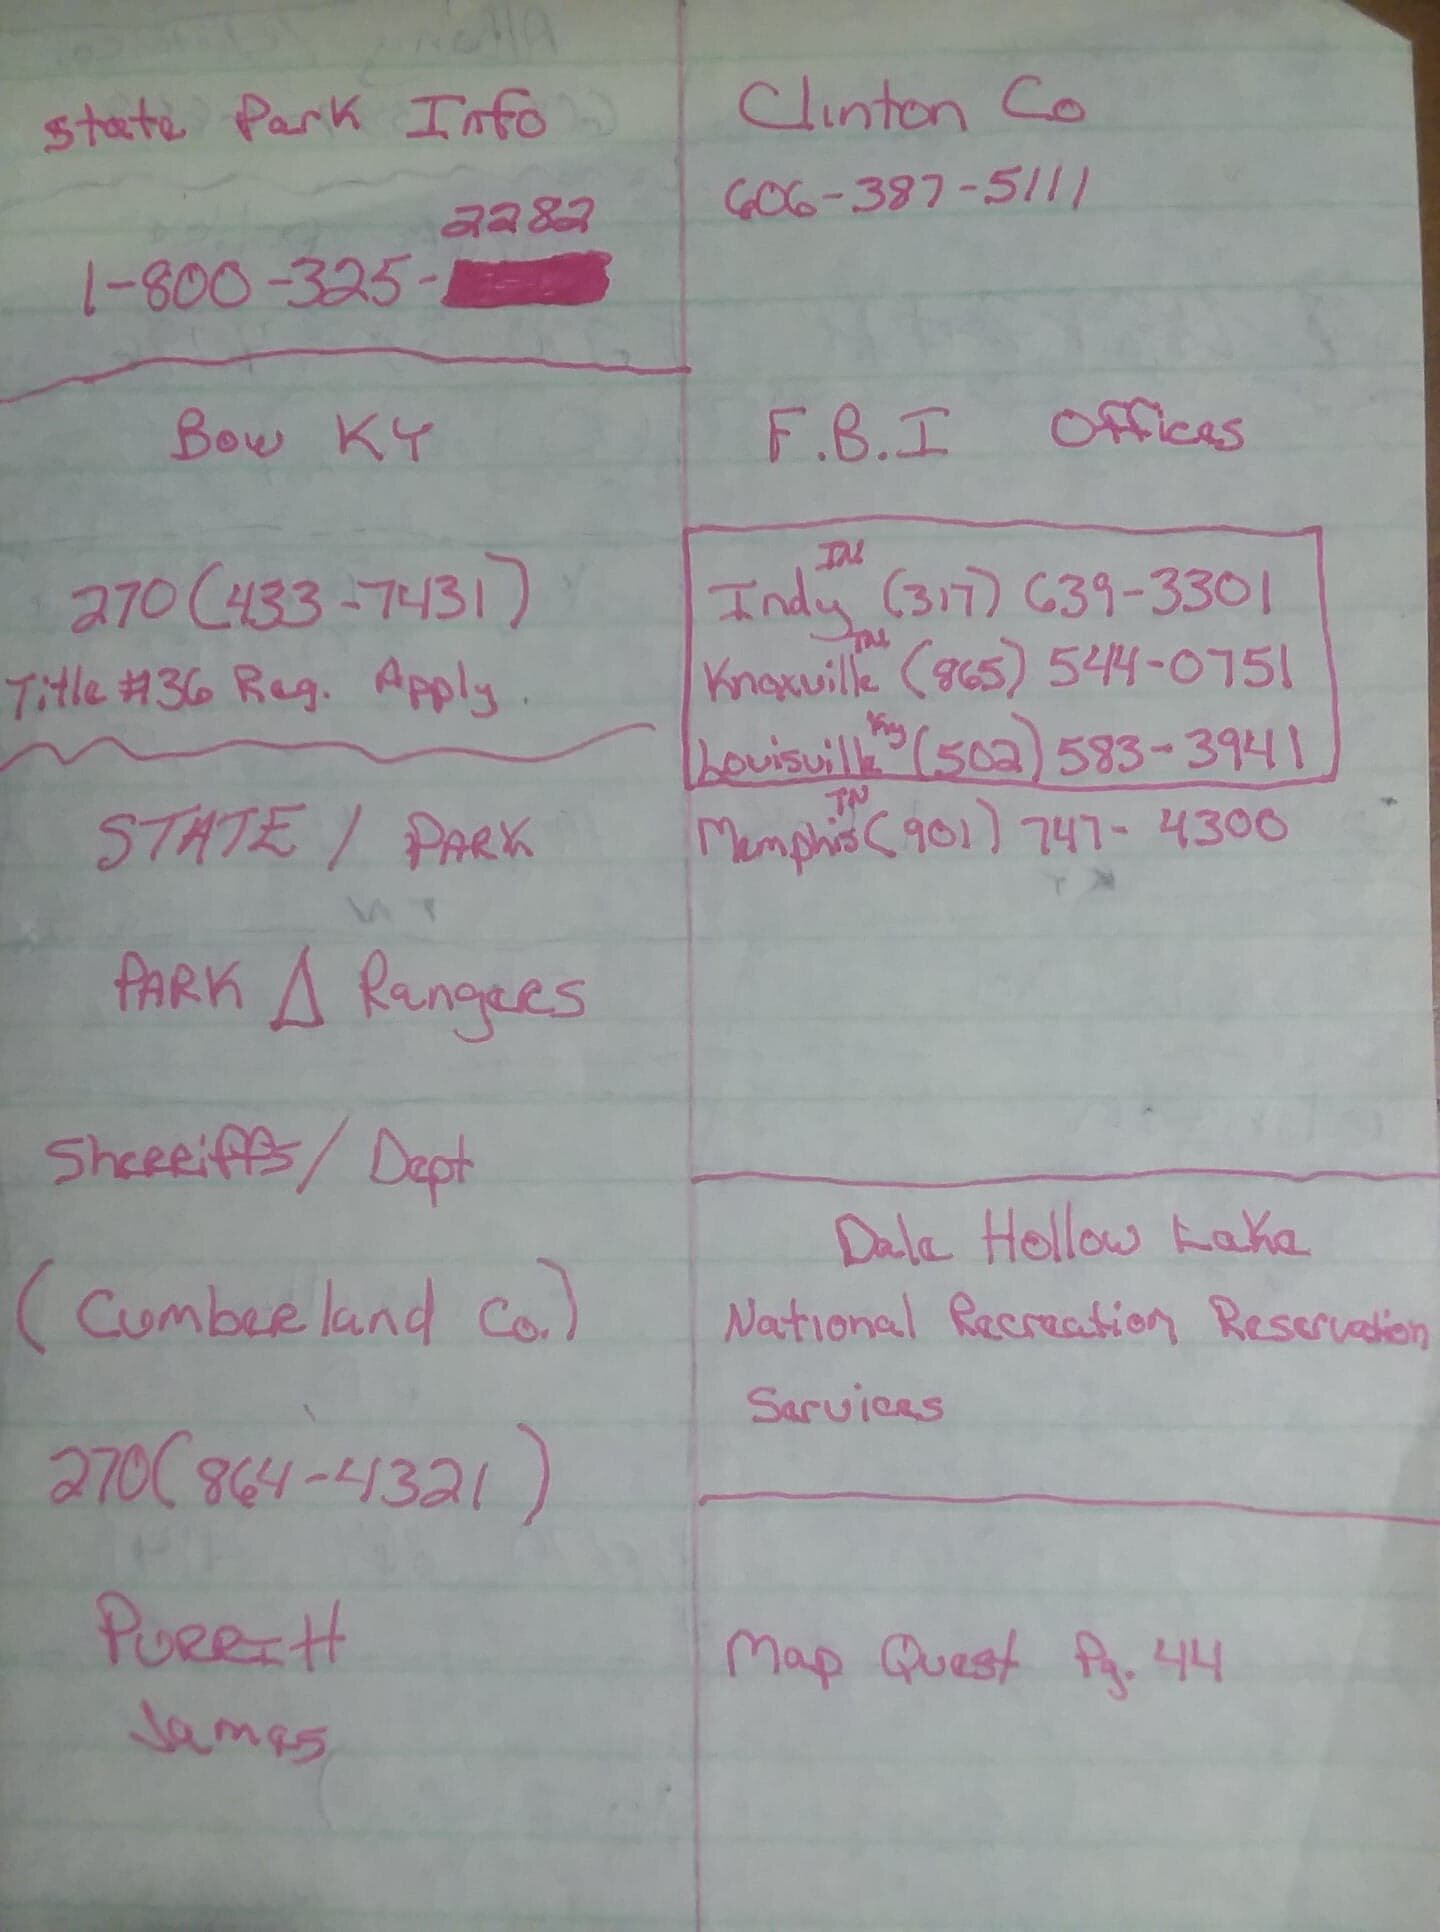 State Park Info
2282
1-800-325-
Bow KY
270(433-7431)
Title #36 Reg. Apply.
STATE / PARK
PARK Δ Rangers
Sherriffs/ Dept
(Cumberland Co.)
270(864-4321)
PURRITT
James
Clinton Co
606-387-5111
F.B.I Offices
Indy IN (317) 639-3301
Knoxville TN (865) 544-0751
Louisville Ky (502) 583-3941
Memphis TN (901) 747-4300
Dale Hollow Lake
National Recreation Reservation
Services
Map Quest Pg. 44